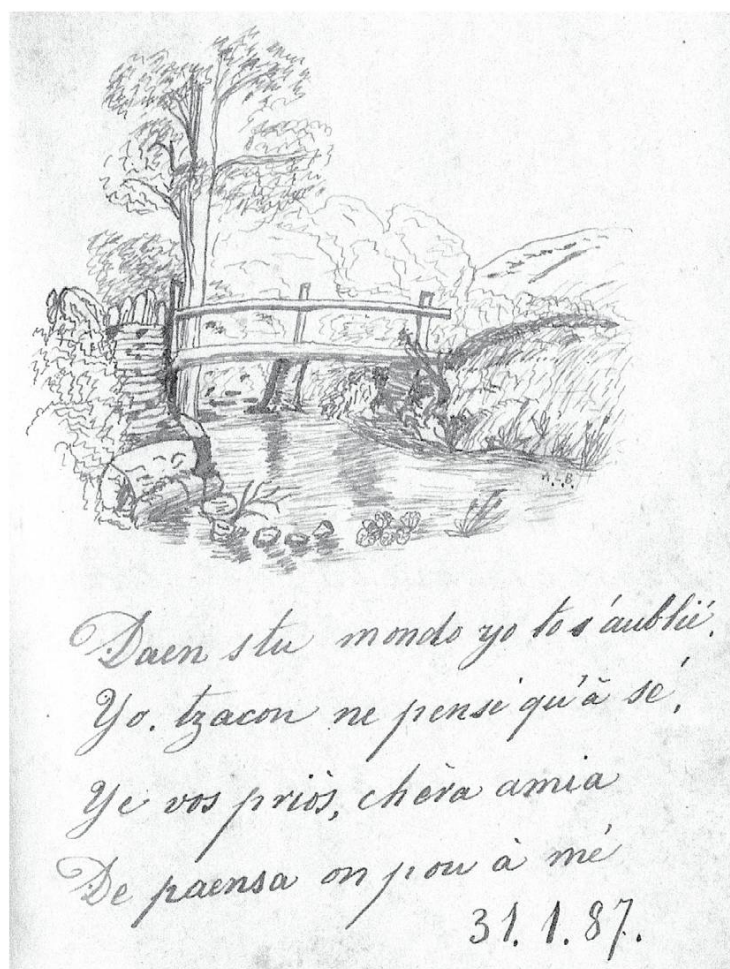 A. B.
Daen stu mondo yo to s'aublié,
Yo. tzacon ne pensé qu'à sé,
Ye vos priòs, chèra amia
De paensa on pou à mé
31. 1. 87.